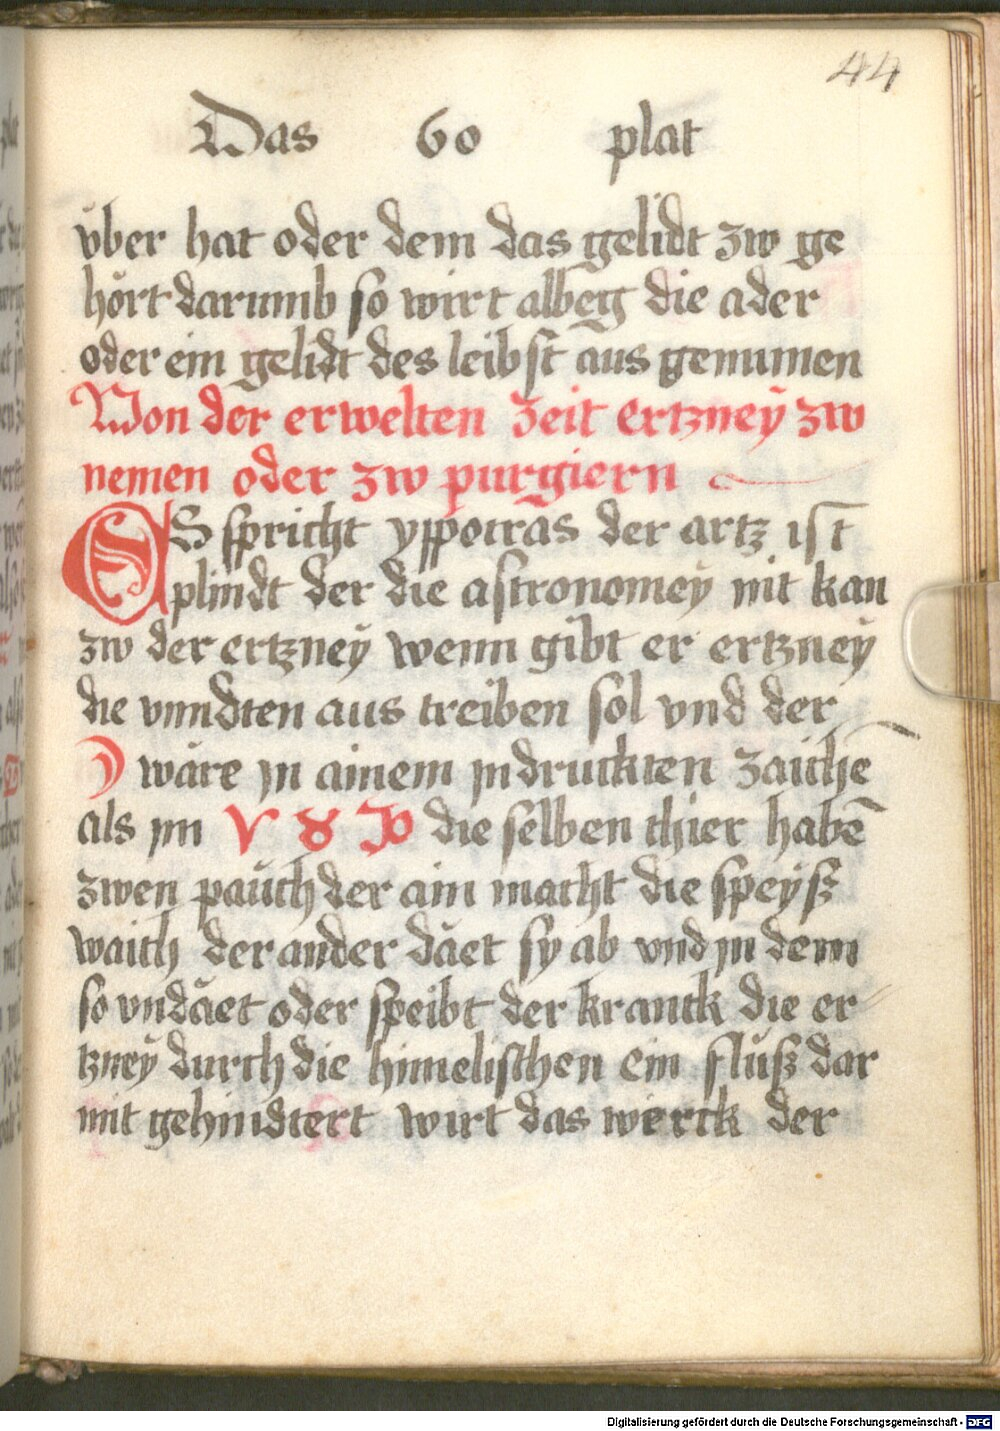 44
Das 60 plat
vber hat oder dem das gelidt zw ge
hört darumb so wirt albeg die ader
oder ein gelidt des leibst aus genumen
Von der erwelten zeit ertzneÿ zw
nemen oder zw purgiern
ES spricht yppocras der artz ist
plindt der die astronomeÿ nit kan
zw der ertzneÿ wenn gibt er ertzneÿ
die vnndten aus treiben sol vnd der
☽ wäre in ainem indruckten zaichē
als im ♈ ♉ ♑ die selben thier habē
zwen pauch der ain macht die speÿß
waich der ander däet sy ab vnd in dem
so vndäet oder speibt der kranck die er
tzneÿ durch die himelischen ein fluß dar
mit gehindtert wirt das werck der
Digitalisierung gefördert durch die Deutsche Forschungsgemeinschaft - DFG